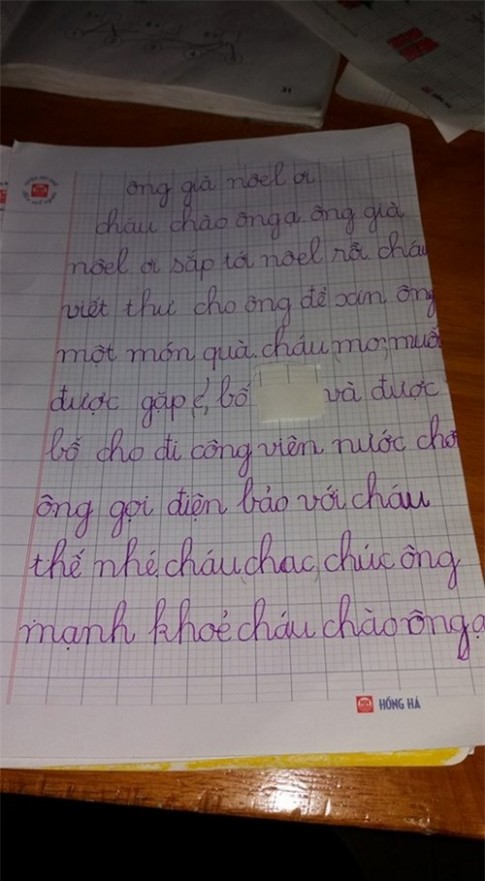 ông già nôel ơi
cháu chào ông ạ ông già
nôel ơi sắp tới noel rồi cháu
viết thư cho ông để xin ông
một món quà. cháu mơ muố
được gặp bố và được
bố cho đi công viên nước chơi
ông gọi điện bảo với cháu
thế nhé. cháu chac chúc ông
mạnh khoẻ cháu chào ông ạ
HỒNG HÀ